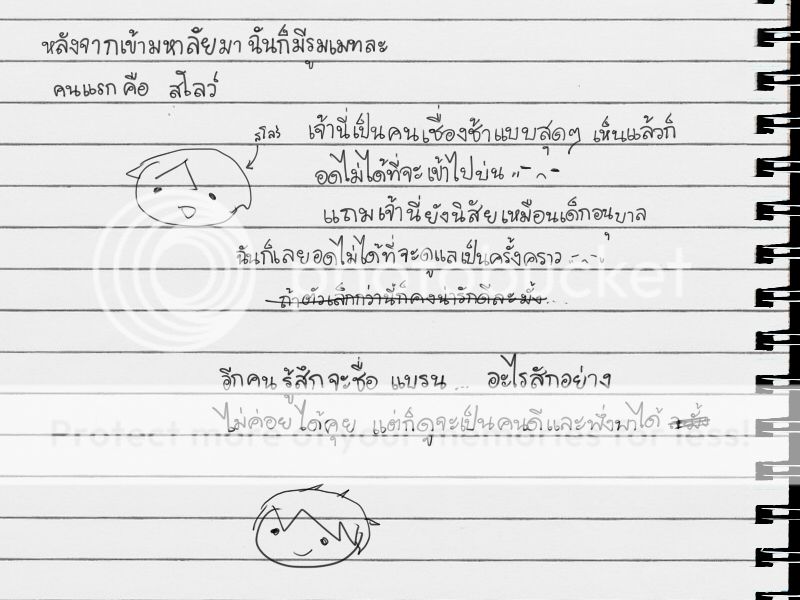 หลังจากเข้ามหาลัยมา ฉันก็มีรูมเมทละ
คนแรก คือ สโลว์
สโลว์
เจ้านี่เป็นคนเชื่องช้าแบบสุดๆ เห็นแล้วก็
อดไม่ได้ที่จะเข้าไปบ่น
แถมเจ้านี่ยังนิสัยเหมือนเด็กอนุบาล
ฉันก็เลยอดไม่ได้ที่จะดูแลเป็นครั้งคราว
ถ้าตัวเล็กกว่านี้ก็คงน่ารักดีละมั้ง...
อีกคน รู้สึกจะชื่อ แบรน ... อะไรสักอย่าง
ไม่ค่อยได้คุย แต่ก็ดูจะเป็นคนดีและพึ่งพาได้ ละมั้ง
photobucket
Protect more of your memories for less!